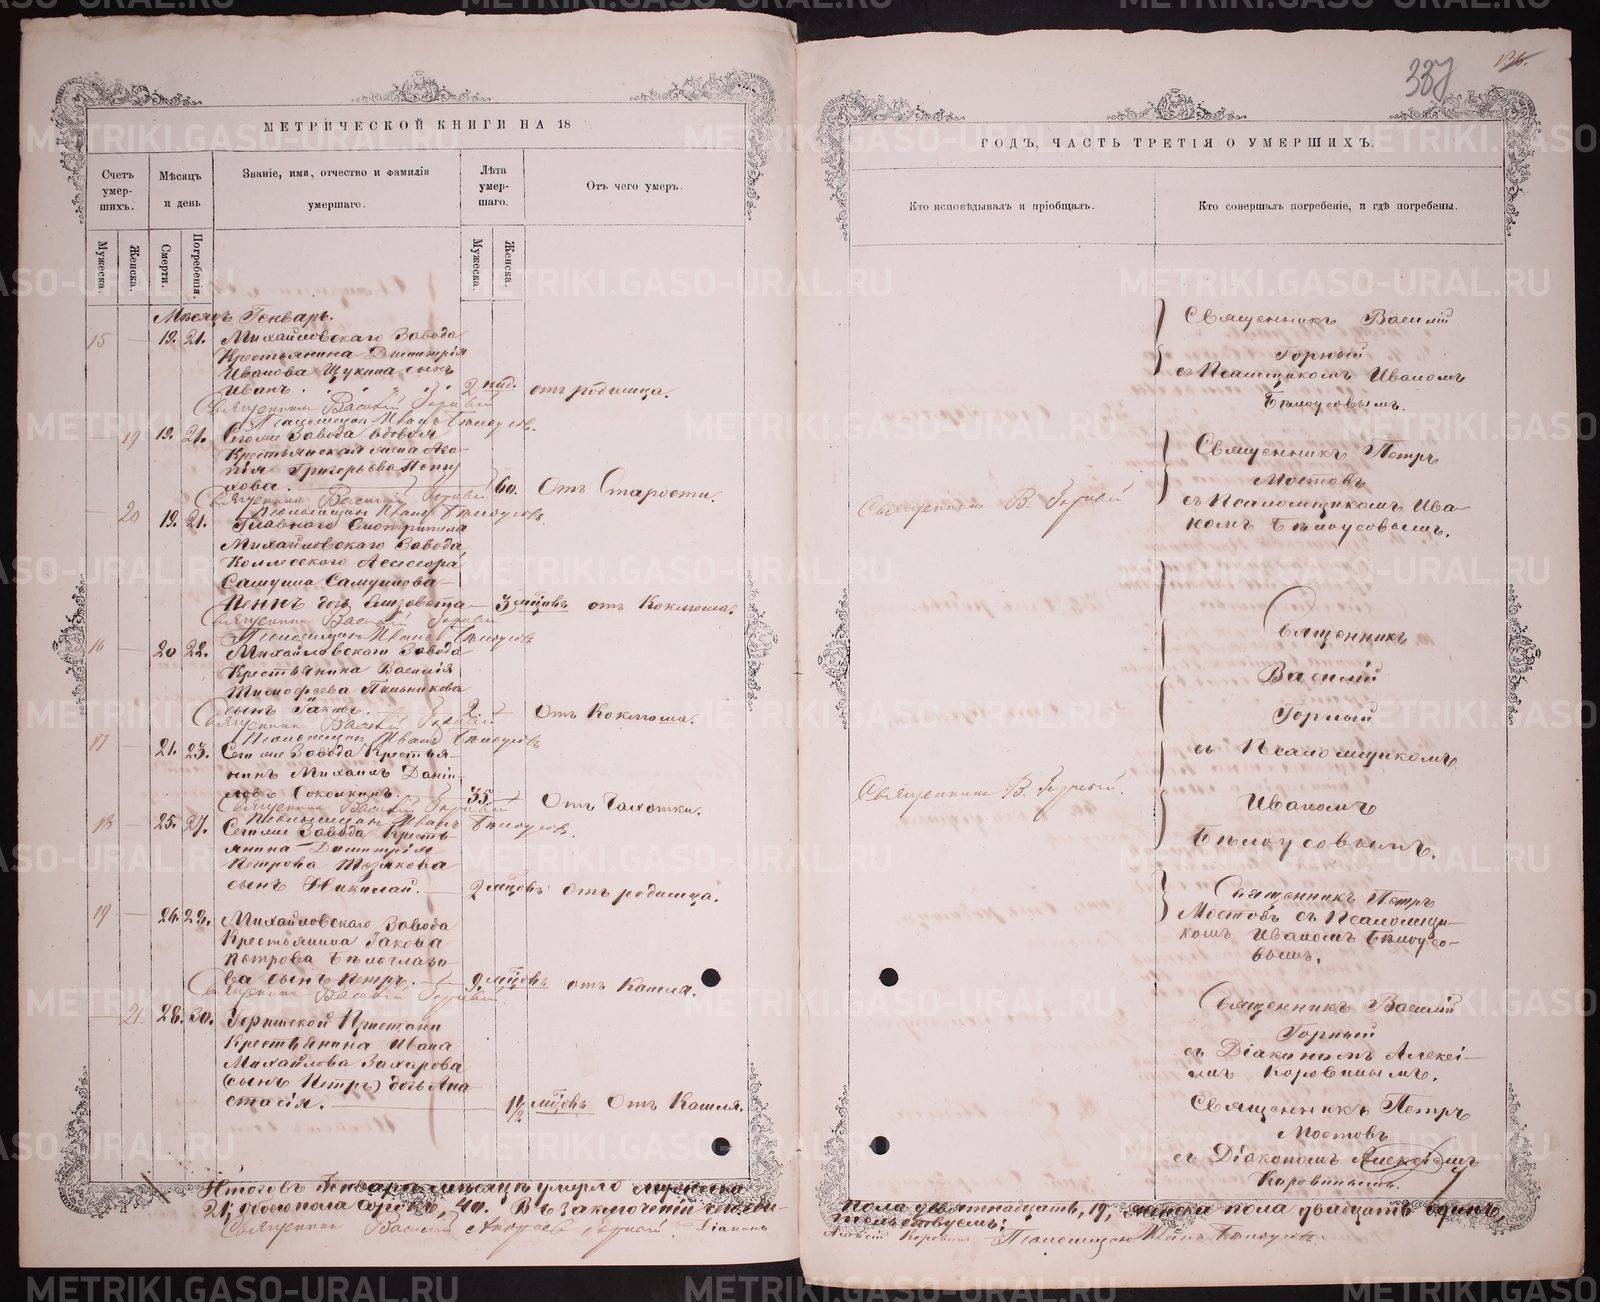 337
136.
МЕТРИЧЕСКОЙ КНИГИ НА 18
ГОДЪ, ЧАСТЬ ТРЕТІЯ О УМЕРШИХЪ.
Счетъ умер-шихъ.
Мѣсяцъ и день
Званіе, имя, отчество и фамилія умершаго.
Лѣта умер-шаго.
Отъ чего умеръ.
Кто исповѣдывалъ и пріобщалъ.
Кто совершалъ погребеніе, и гдѣ погребены.
Мужеска.
Женска.
Смерти.
Погребенія.
Мужеска.
Женска.
Мѣсяцъ Генварь.
15 — 19. 21. Михайловскаго Завода
Крестьянина Димитрія
Иванова Щукина сынъ
Иванъ. 2 нѣд. отъ родимца.
Священникъ Василій Горный
Псаломщикъ Иванъ Бѣлоусовъ.
— 19 19. 21. Сего же Завода вдовая
Крестьянская жена
Григорьева
60. Отъ Старости.
Священникъ Василій Горный
Псаломщикъ Иванъ Бѣлоусовъ
— 20 19. 21. Главнаго Смотрителя
Михайловскаго Завода,
Коллесскаго Асессора
Самуила Самуилова
Пеннъ дочь Елизавета — 3 мѣсцовъ отъ Коклюша.
Священникъ Василій Горный
Псаломщикъ Иванъ Бѣлоусовъ
16 — 20 22. Михайловскаго Завода
Крестьянина Василія
Тимофеева Пильникова
сынъ Іаковъ. 2 — Отъ Коклюша.
Священникъ Василій Горный
Псаломщикъ Иванъ Бѣлоусовъ
17 — 21. 23. Сего же Завода Крестья-
нинъ Михаилъ Даніи-
ловъ Соколкинъ. 35 — Отъ Чахотки.
Священникъ Василій Горный
Псаломщикъ Иванъ Бѣлоусовъ.
18 — 25. 27. Сего же Завода Кресть-
янина Димитрія
Петрова Тезякова
сынъ Николай. — 2 мѣсцовъ Отъ родимца.
19 — 26. 28. Михайловскаго Завода
Крестьянина Іакова
Петрова Бѣлоглазо-
ва сынъ Петръ. — 9. мѣсцовъ отъ Кашля.
Священникъ Василій Горный
— 21. 28. 30. Пристани
Крестьянина Ивана
Михайлова Захарова
(сынъ Петръ) дочь Ана-
стасія. 1½ мѣсцовъ Отъ Кашля.
Итого въ Генварѣ мѣсяцѣ умерло мужеска
21, обоего пола сорокъ, 40. Въ заключеніи свидѣ-
Священникъ Василій Андреевъ Горный. Діаконъ
Священникъ В. Горный
Священникъ В. Горный.
Священникъ Василій
Горный
съ Псаломщикомъ Иваномъ
Бѣлоусовымъ.
Священникъ Петръ
Мостовъ
съ Псаломщикомъ Ива-
номъ Бѣлоусовымъ.
Священникъ
Василій
Горный
съ Псаломщикомъ
Иваномъ
Бѣлоусовымъ.
Священникъ Петръ
Мостовъ съ Псаломщи-
комъ Иваномъ Бѣлоусо-
вымъ.
Священникъ Василій
Горный
съ Діакономъ Алексі-
емъ Коровинымъ.
Священникъ Петръ
Мостовъ
съ Діакономъ Алексіемъ
Коровинымъ.
пола девятнадцать, 19, женска пола двадцать одинъ,
тельствуемъ:
Алексій Коровинъ Псаломщикъ Иванъ Бѣлоусовъ.
METRIKI.GASO-URAL.RU